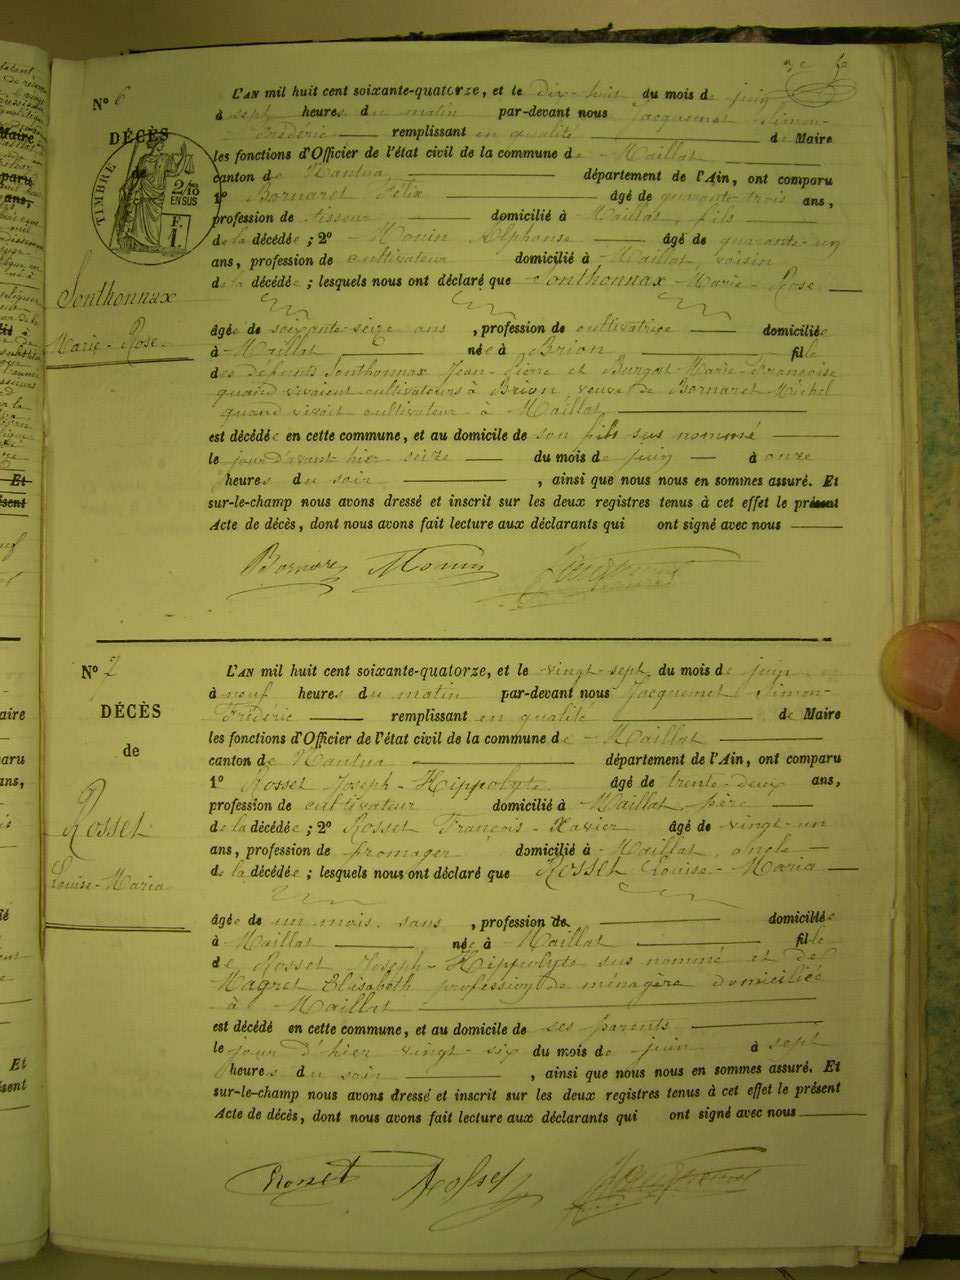 3e fe
N° 6
DÉCÈS
TIMBRE
2/10
EN SUS
F.
1.
Sonthonnax
Marie-Rose
L'AN mil huit cent soixante-quatorze, et le dix-huit du mois de juin
à sept heures du matin par-devant nous Jacquemet Simon-
Frédéric remplissant en qualité de Maire
les fonctions d'Officier de l'état civil de la commune de Maillat
canton de Nantua, département de l'Ain, ont comparu
1° Bornaret Félix âgé de quarante-trois ans,
profession de tisseur domicilié à Maillat fils
de la décédée ; 2° Monin Alphonse âgé de quarante-un
ans, profession de cultivateur domicilié à Maillat voisin
de la décédée ; lesquels nous ont déclaré que Sonthonnax Marie-Rose
âgée de soixante-seize ans , profession de cultivatrice domiciliée
à Maillat née à Brion fille
des défunts Sonthonnax Jean-Pierre et Burgat Marie-Françoise
quand vivaient cultivateurs à Brion veuve de Bornaret Michel
quand vivait cultivateur à Maillat
est décédée en cette commune, et au domicile de son fils sus nommé
le jour d'avant hier seize du mois de juin à onze
heures du soir , ainsi que nous nous en sommes assuré. Et
sur-le-champ nous avons dressé et inscrit sur les deux registres tenus à cet effet le présent
Acte de décès, dont nous avons fait lecture aux déclarants qui ont signé avec nous
Bornaret Monin
N° 7
DÉCÈS
de
Rosset
Louise-Maria
L'AN mil huit cent soixante-quatorze, et le vingt-sept du mois de juin
à neuf heures du matin par-devant nous Jacquemet Simon-
Frédéric remplissant en qualité de Maire
les fonctions d'Officier de l'état civil de la commune de Maillat
canton de Nantua département de l'Ain, ont comparu
1° Rosset Joseph-Hippolyte âgé de trente-deux ans,
profession de cultivateur domicilié à Maillat, père
de la décédée ; 2° Rosset François-Xavier âgé de vingt-un
ans, profession de fromager domicilié à Maillat, oncle
de la décédée ; lesquels nous ont déclaré que Rosset Louise-Maria
âgée de un mois, sans , profession de domiciliée
à Maillat née à Maillat fille
de Rosset Joseph-Hippolyte sus nommé et de
Magret Elisabeth profession de ménagère domiciliée
à Maillat
est décédé en cette commune, et au domicile de ses parents
le jour d'hier vingt-six du mois de juin à sept
heures du soir , ainsi que nous nous en sommes assuré. Et
sur-le-champ nous avons dressé et inscrit sur les deux registres tenus à cet effet le présent
Acte de décès, dont nous avons fait lecture aux déclarants qui ont signé avec nous
Rosset Rosset